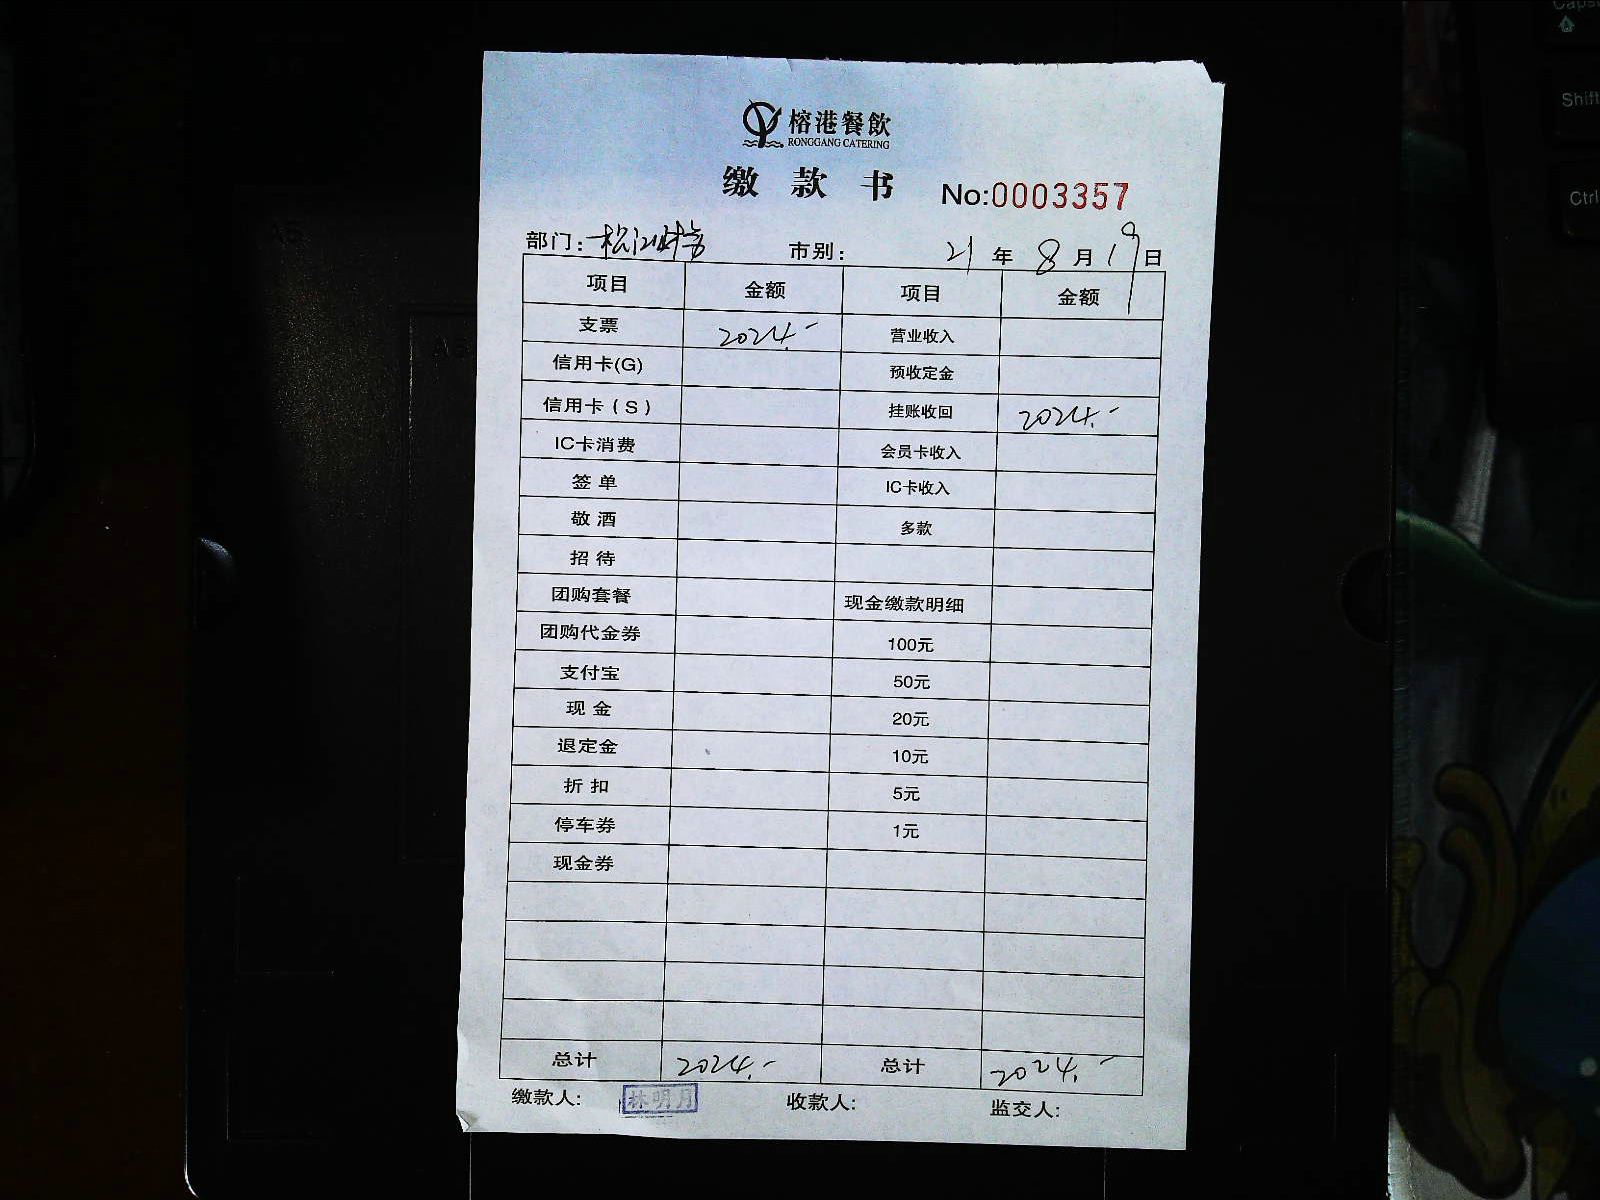 榕港餐飲
RONGGANG CATERING
缴款书 No:0003357
部门: 松江财务 市别: 21年8月19日
项目 金额 项目 金额
支票 2024.- 营业收入
信用卡(G) 预收定金
信用卡(S) 挂账收回 2024.-
IC卡消费 会员卡收入
签单 IC卡收入
敬酒 多款
招待
团购套餐 现金缴款明细
团购代金券 100元
支付宝 50元
现金 20元
退定金 10元
折扣 5元
停车券 1元
现金券
总计 2024.- 总计 2024.-
缴款人: 林明月 收款人: 监交人:
Caps
Shift
Ctrl